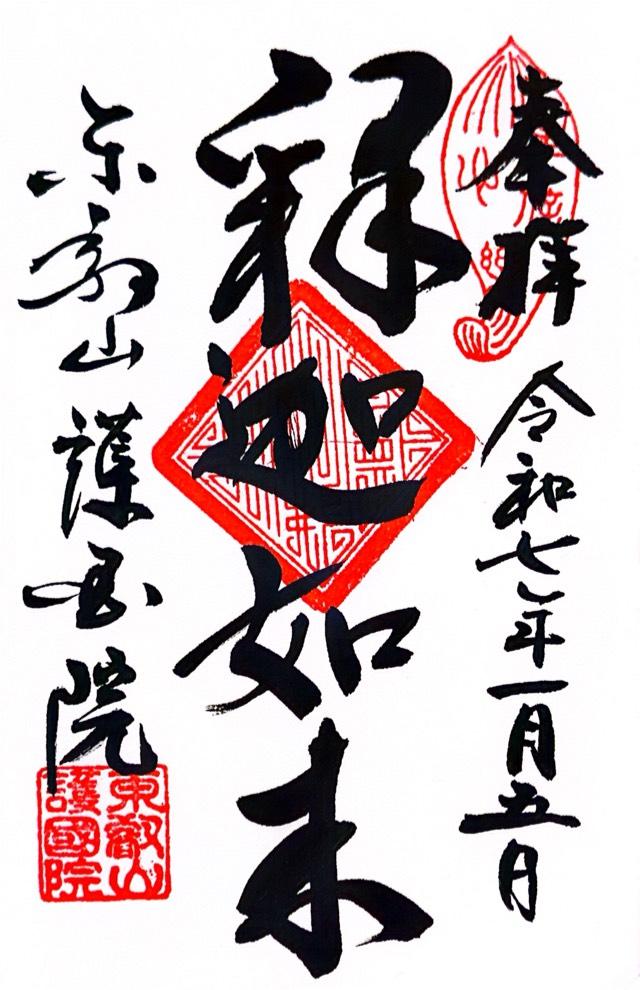 奉拝
令和七年一月五日
釋迦如来
東叡山
護国院
東叡山
護國院